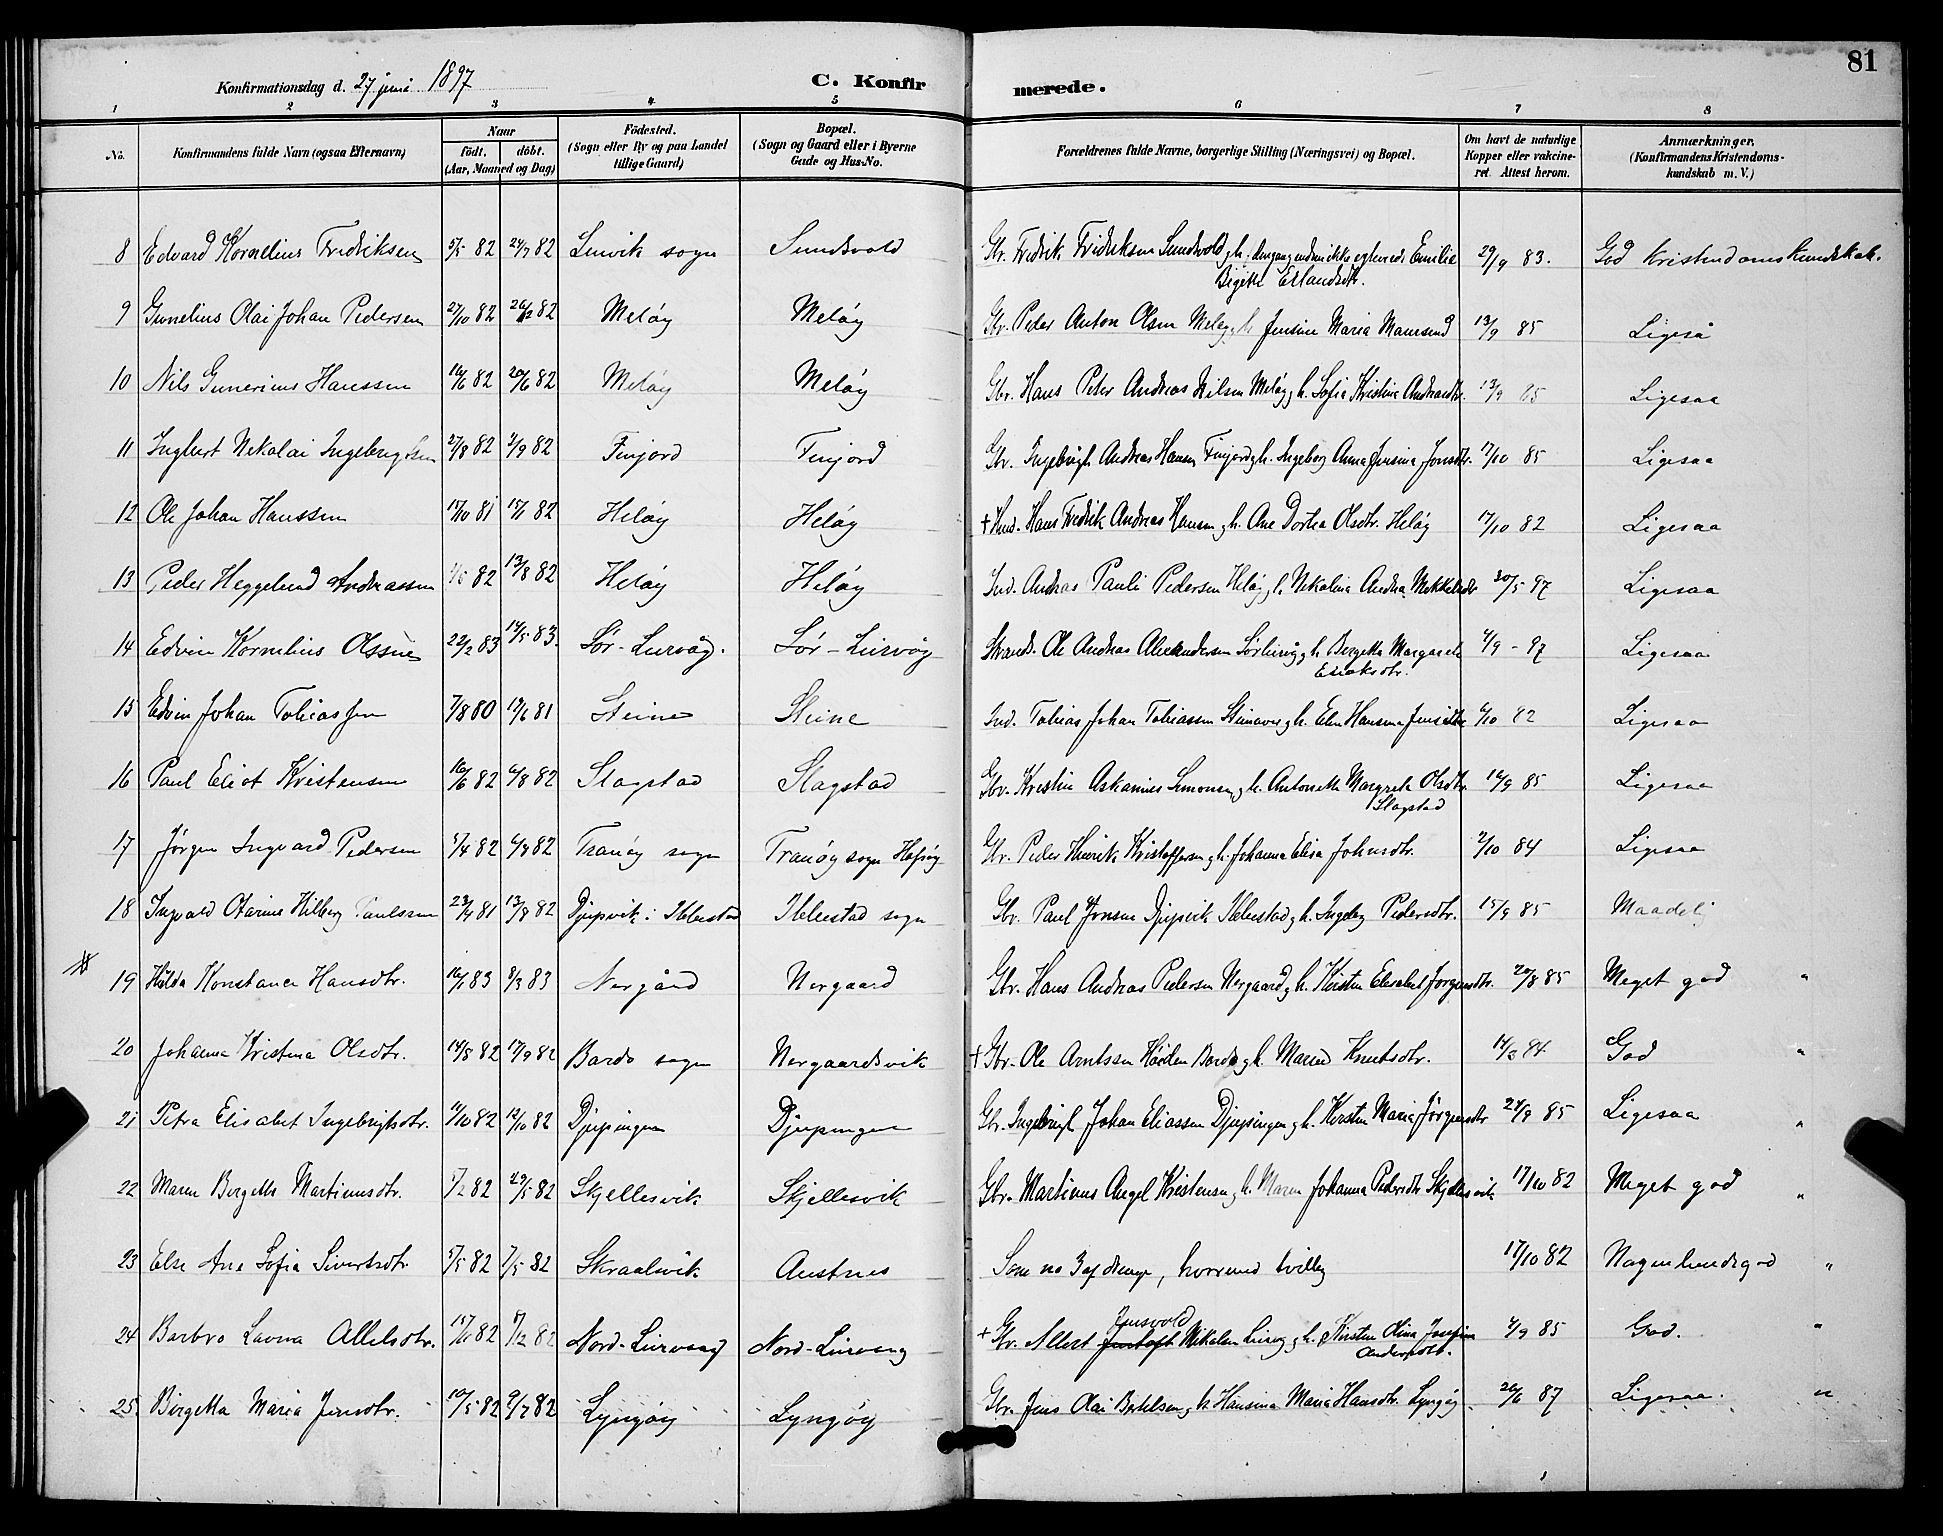 81
Konfirmationsdag d. 27 juni 1897 C. Konfirmerede.
1 2 3 4 5 6 7 8
No. Konfirmandens fulde Navn (ogsaa Efternavn) Naar födt. döbt. (Aar, Maaned og Dag) Födested. (Sogn eller By og paa Landet tillige Gaard) Bopæl. (Sogn og Gaard eller i Byerne Gade og Hus-No. Forældrenes fulde Navne, borgerlige Stilling (Næringsvei) og Bopæl. Om havt de naturlige Kopper eller vakcineret. Attest herom. Anmærkninger. (Konfirmandens Kristendomskundskab m. V.)
8 Edvard Kornelius Fredriksen 5/5 82 24/7 82 Lenvik sogn Sundsvold Gbr. Fredrik Fredriksen Sundsvold g h. Emilie 29/9 83. God Kristendomskundskab.
Bigitte Erlandsdtr.
9 Gunelius Olai Johan Pedersen 27/10 82 82 Meløy Meløy Gbr. Peder Anton Olsen Meløy g h Jensine Maria 13/9 85 Ligeså
10 Nils Gunerius Hanssen 16/6 82 20/6 82 Meløy Meløy Gbr. Hans Peter Andreas Nilsen Meløy g h. Sofia Kristina Andreasdtr. 13/9 85 Ligesaa
11 Ingbert Nekolai Ingebrigtsen 27/8 82 2/9 82 Finjord Finjord Gbr. Ingebrigt Andreas Hansen Finjord g h. Ingeborg Anna Jensina Jonsdtr. 17/10 85 Ligesaa
12 Ole Johan Hanssen 15/10 81 15/1 82 Heløy Heløy + Ind. Hans Fredrik Andreas Hansen g h. Ane Dortea Olsdtr. Heløy 17/10 82 Ligesaa
13 Peder Heggelund Andreassen 82 13/8 82 Heløy Heløy Ind. Andreas Pauli Pedersen Heløy g h. Nekolina Andrea Mekkelsdtr 30/5 97 Ligesaa
14 Edvin Kornelius Olssen 22/2 83 14/5 83. Sör-Lurvåg. Sör-Lurvåg Strands. Ole Andreas Alexandersen g h. Bergetta Margareta 4/9 - 97 Ligesaa
15 Edvin Johan Tobiassen 7/8 80 19/6 81 Steine Steine Ind. Tobias Johan Tobiassen g h. Elen Hansena Jensdtr 82 Ligesaa
16 Paul Eliot Kristensen 16/6 82 6/8 82 Slagstad Slagstad Gbr. Kristen Askanius Simonsen g h. Antonetta Margrete Olsdtr. 16/9 85 Ligesaa
Slagstad
17 Jørgen Ingvard Pedersen 5/4 82 6/8 82 Tranöy sogn Tranöy sogn Hofsøy Gbr. Peder Henrik Kristoffersen g h. Johanna Elisa Johnsdtr. 2/10 84 Ligesaa
18 Ingvald Otarius Hilberg Paulssen 81 13/8 82 Djupvik i Ibbestad Ibbestad sogn Gbr. Paul Jensen Djupvik Ibbestad g h. Ingebg Pedersdtr. 15/9 85 Maadelig
19 Hilda Konstance Hansdtr. 16/1 83 8/3 83 Nergård Nergaard Gbr. Hans Andreas Pedersen Nergaard g h. Kirsten Elesabet Jørgensdtr. 20/8 85 Meget god "
20 Johanna Kristina Olsdtr. 14/8 82 17/9 82 Bardo sogn Nergaardsvik + Gbr. Ole Arntssen Bardo g h. Maren Knutsdtr. 84 God "
21 Petra Elisabet Ingebrigtsdtr. 4/10 82 12/10 82 Djupingen Djupingen Gbr. Ingebrigt Johan Eliassen Djupingen g h. Kersten Maria Jørgensdtr 24/9 85 Ligesaa "
22 Maren Bergette Martinusdtr. 5/2 82 29/5 82 Skjellesvik Skjellesvik Gbr. Martinus Angel Kristensen g h. Maren Johanna Pedersdtr Skjellesvik 17/10 82 Meget god "
23 Else Ane Sofia Sivertsdtr 5/5 82 7/5 82 Skraalsvik Austnes Som no 3 af drenge, hvormed tvilling 17/10 82 Nogenlunde god "
24 Barbro Lavina Alletsdtr. 82 82 Nord-Lurvaag Nord-Lurvaag + Gbr. Allert Jensvold Nikolaisen g h. Kirsten Olina Josefina 4/9 85 God. "
Andersdtr.
25. Birgetta Maria Jensdtr. 10/5 82 9/7 82 Lyngöy Lyngöy Gbr. Jens Olai Bertelsen g h Hansina Maria Hansdtr. Lyngöy 20/6 87 Ligesaa. "